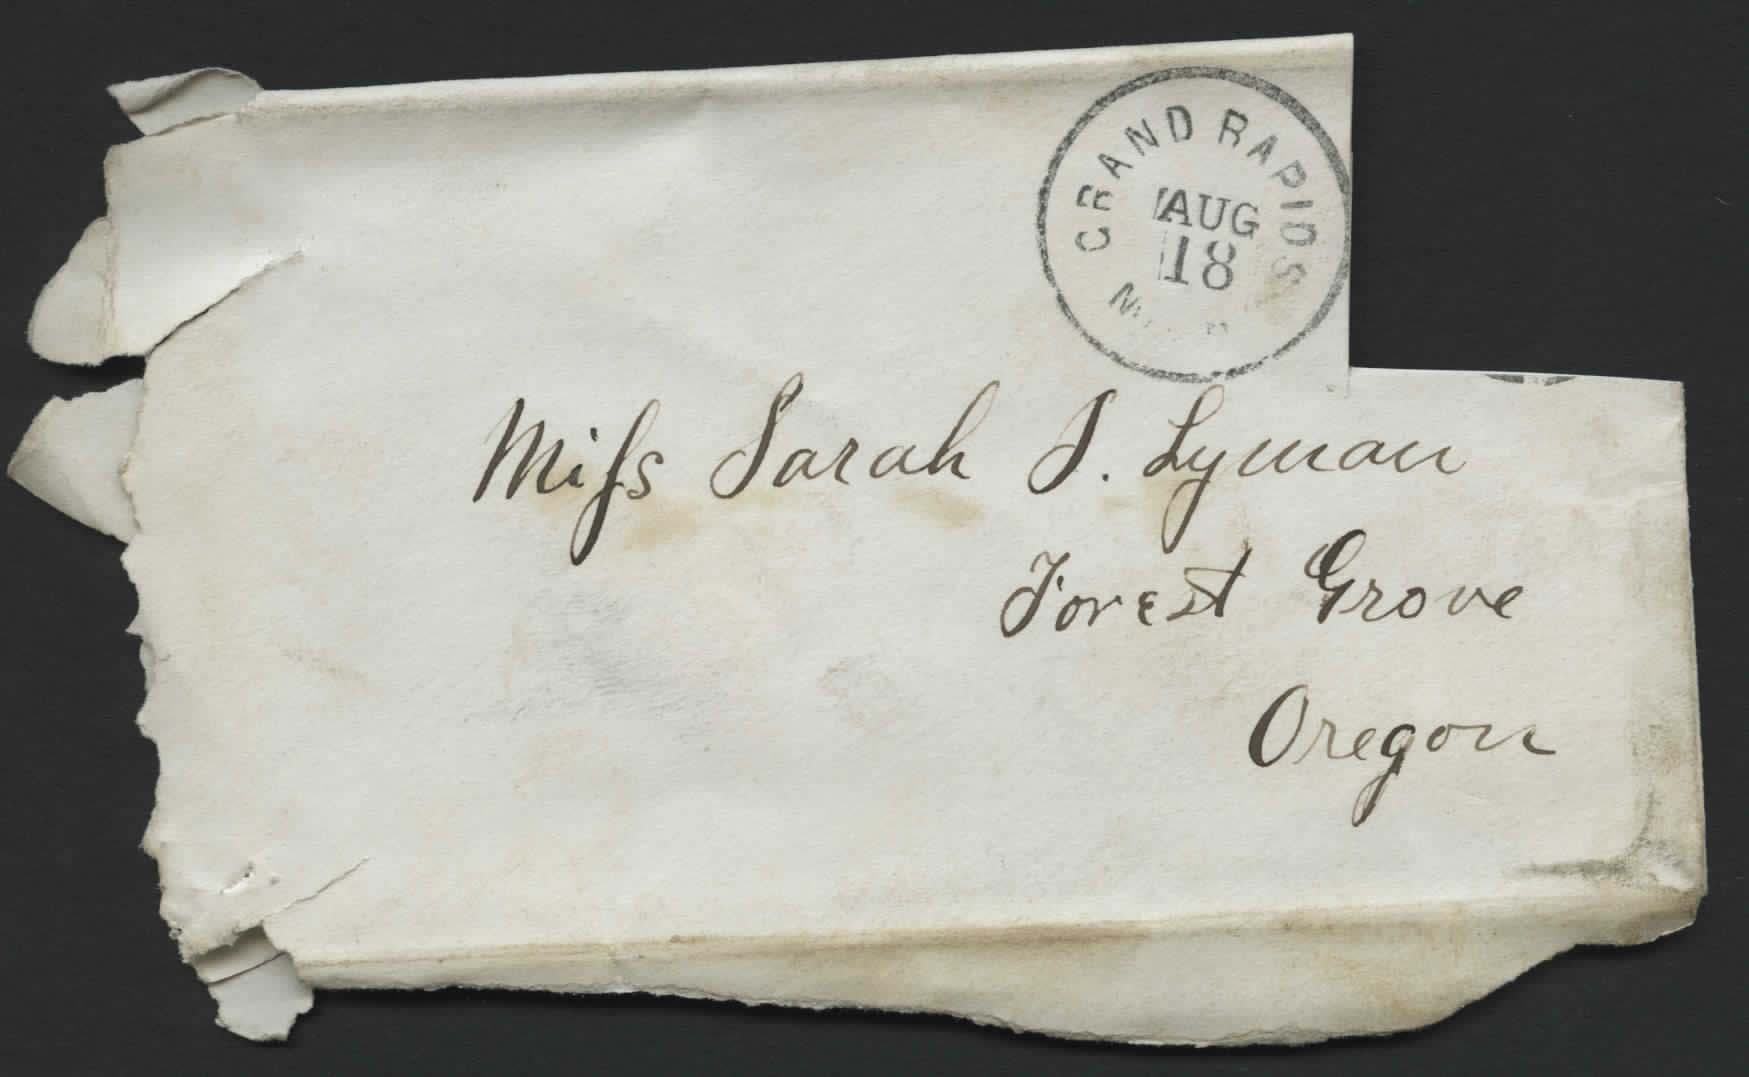 GRAND RAPIDS
AUG
18
Miss Sarah S. Lyman
Forest Grove
Oregon